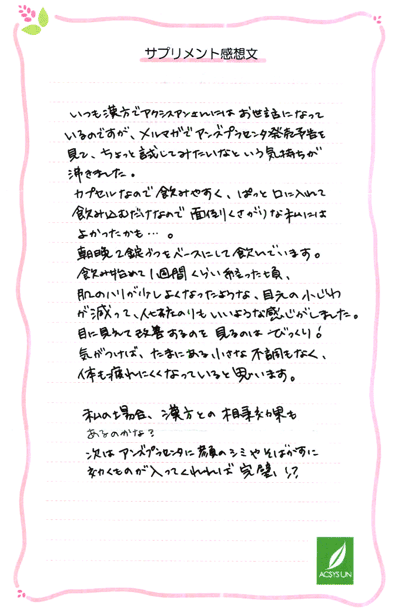 サプリメント感想文
いつも漢方でアクシスアンさんにはお世話になって
いるのですが、メルマガでアンズプラセンタ発売予告を
見て、ちょっと試してみたいなという気持ちが
沸きました。
カプセルなので飲みやすく、ぱっと口に入れて
飲み込むだけなので面倒くさがりな私には
よかったかも…。
朝晩2錠づつをベースにして飲んでいます。
飲み始めて1週間くらい経った頃、
肌のハリが少しよくなったような、目元の小じわ
が減って、化粧のりもいいような感じがしました。
目に見えて改善するのを見るのはびっくり!
気がつけば、たまにある小さな不調もなく、
体も疲れにくくなっていると思います。
私の場合、漢方との相乗効果も
あるのかな?
次はアンズプラセンタに顔のシミやそばかすに
効くものが入ってくれれば完璧!?
ACSYS UN